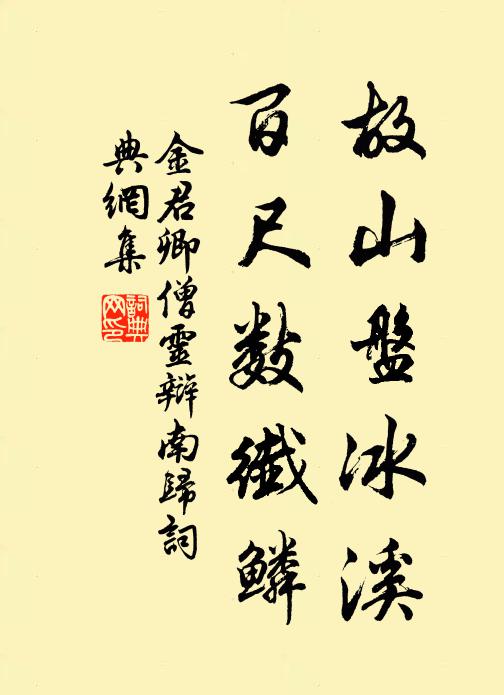 故山盤冰溪
百尺数纖鱗
金君卿僧靈辯南歸詞
典網集
詞典網印